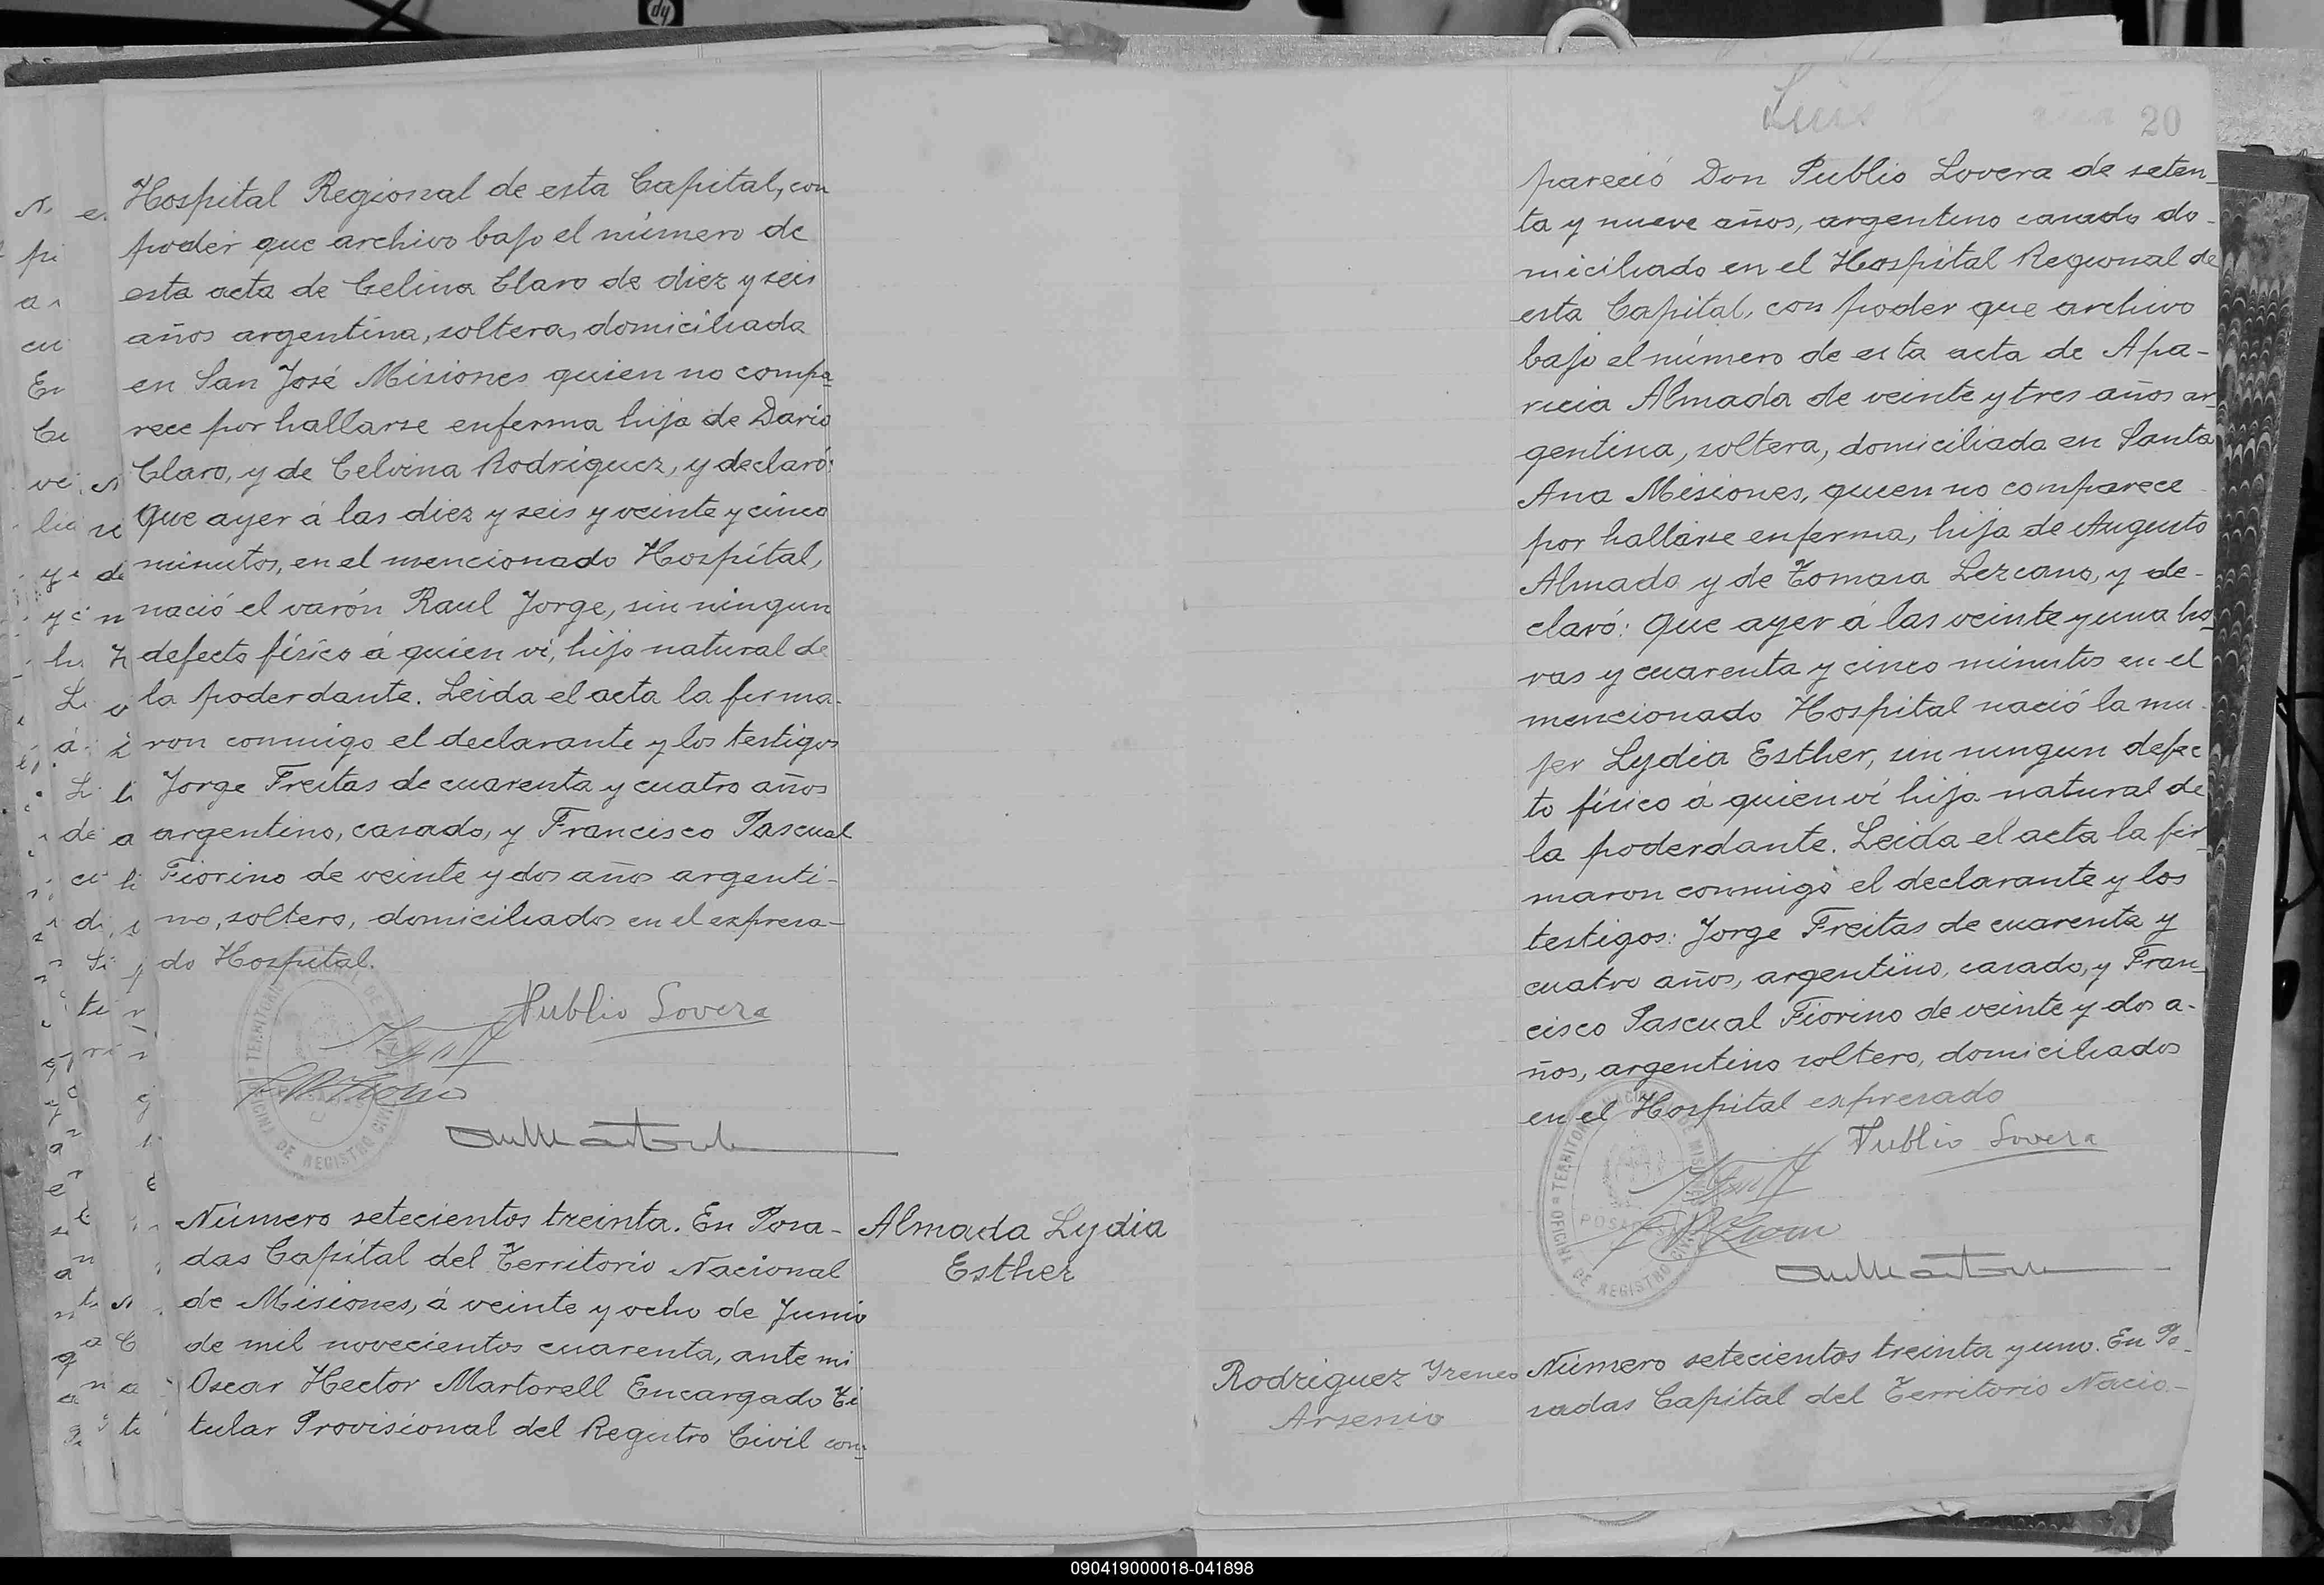 Hospital Regional de esta Capital, con
poder que archivo bajo el número de
esta acta de Celina Claro de diez y seis
años argentina, soltera, domiciliada
en San José Misiones quien no compa
rece por hallarse enferma hija de Dario
Claro, y de Celvina Rodriguez, y declaró:
Que ayer á las diez y seis y veinte y cinco
minutos, en el mencionado Hospital,
nació el varón Raul Jorge, sin ningun
defecto físico á quien ví, hijo natural de
la poderdante. Leida el acta la firma-
ron conmigo el declarante y los testigos
Jorge Freitas de cuarenta y cuatro años
argentino, casado, y Francisco Pascual
Fiorino de veinte y dos años argenti-
no, soltero, domiciliados en el expresa-
do Hospital.
Publio Lovera
TERRITORIO NACIONAL DE
OFICINA DE REGISTRO CIVIL
Número setecientos treinta. En Posa-
das Capital del Territorio Nacional
de Misiones, á veinte y ocho de Junio
de mil novecientos cuarenta, ante mi
Oscar Hector Martorell Encargado Ti
tular Provisional del Registro Civil com-
Almada Lydia
Esther
Luis
20
pareció Don Publio Lovera de seten-
ta y nueve años, argentino casado do-
miciliado en el Hospital Regional de
esta Capital, con poder que archivo
bajo el número de esta acta de Apa-
ricia Almada de veinte y tres años ar-
gentina, soltera, domiciliada en Santa
Ana Misiones, quien no comparece
por hallarse enferma, hija de Augusto
Almado y de Tomasa Lezcano, y de-
claró: Que ayer á las veinte y una ho-
ras y cuarenta y cinco minutos en el
mencionado Hospital nació la mu-
jer Lydia Esther, sin ningun defec
to físico á quien ví hija natural de
la poderdante. Leida el acta la fir-
maron conmigo el declarante y los
testigos: Jorge Freitas de cuarenta y
cuatro años, argentino, casado, y Fran-
cisco Pascual Fiorino de veinte y dos a-
ños, argentino soltero, domiciliados
en el Hospital expresado
Publio Lovera
TERRITORIO NACIONAL DE MISIONES
POSADAS
OFICINA DE REGISTRO CIVIL
Rodriguez Yreneo
Arsenio
Número setecientos treinta y uno. En Po-
sadas Capital del Territorio Nacio-
090419000018-041898